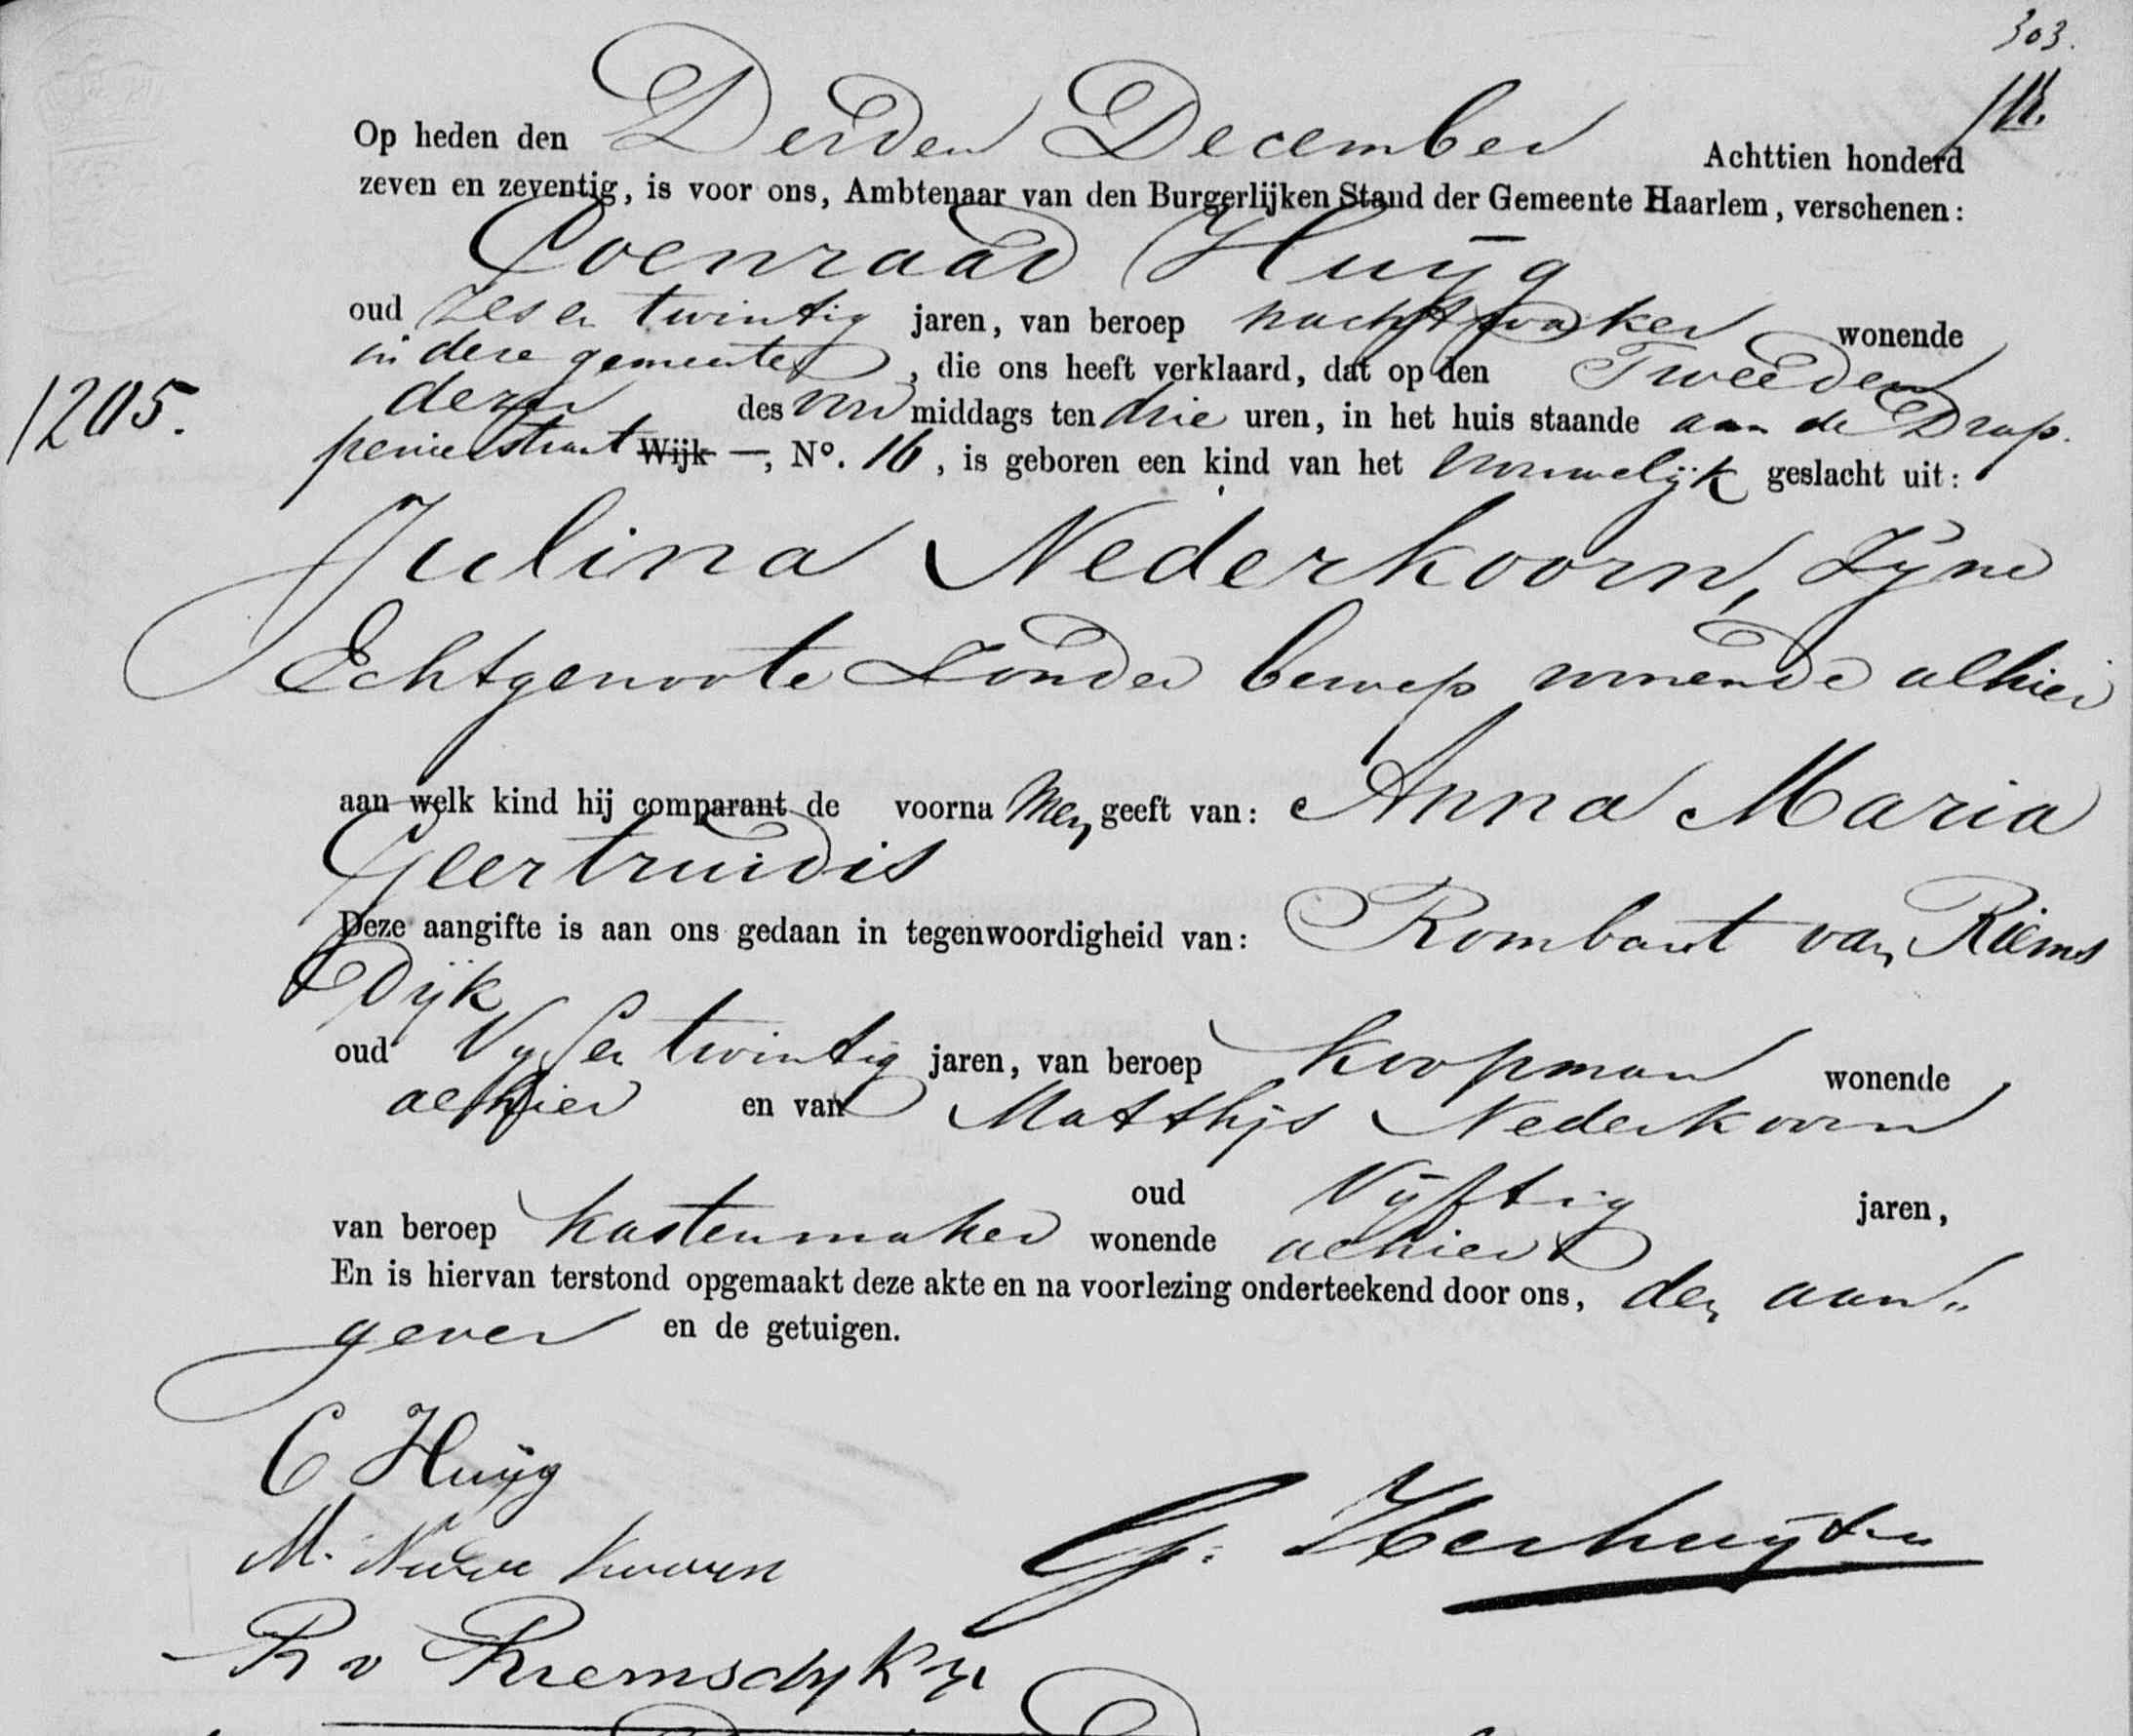 303.
Op heden den Derden December Achttien honderd
zeven en zeventig, is voor ons, Ambtenaar van den Burgerlijken Stand der Gemeente Haarlem, verschenen:
Coenraad Huijg
oud zes en twintig jaren, van beroep nachtwaker wonende
in deze gemeente, die ons heeft verklaard, dat op den Tweeden
dezer des voor middags ten drie uren, in het huis staande aan de Drap-
1205.
penierstraat Wijk —, No. 16, is geboren een kind van het vrouwelijk geslacht uit:
Julina Nederkoorn, Zijne
Echtgenoote zonder beroep wonende alhier
aan welk kind hij comparant de voorna men geeft van: Anna Maria
Geertruidis
Deze aangifte is aan ons gedaan in tegenwoordigheid van: Rombout van Riems
Dijk
oud Vijf en twintig jaren, van beroep Koopman wonende
alhier en van Matthijs Nederkoorn
oud Vijftig jaren,
van beroep Kastenmaker wonende alhier
En is hiervan terstond opgemaakt deze akte en na voorlezing onderteekend door ons, den aan„
gever en de getuigen.
C Huijg
M. Nederkoorn
R v Riemsdijk